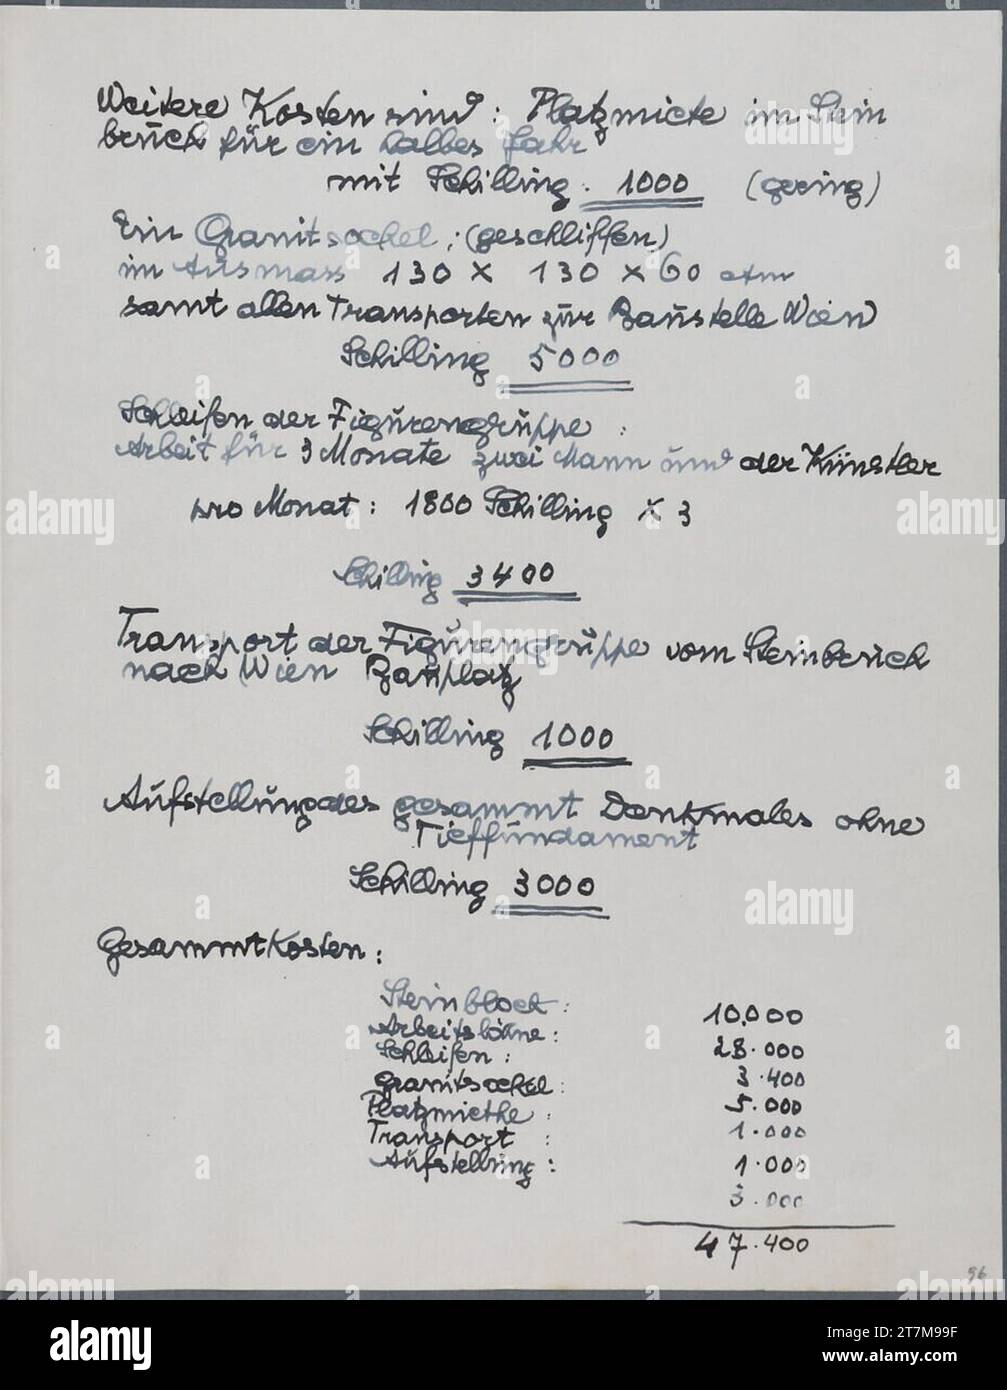 Weitere Kosten sind: Platzmiete im Stein
bruch für ein halbes Jahr
mit Schilling: 1000 (gering)
Ein Granitsockel: (geschliffen)
im Ausmass 130 x 130 x 60 ctm
samt allen Transporten zur Baustelle Wien
Schilling 5000
Schleifen der Figurengruppe:
Arbeit für 3 Monate zwei Mann und der Künstler
pro Monat: 1800 Schilling x 3
Schilling 3400
Transport der Figurengruppe vom Steinbruch
nach Wien Bauplatz
Schilling 1000
Aufstellung des gesammt Denkmales ohne
Tieffundament
Schilling 3000
Gesammtkosten:
Steinblock: 10.000
Arbeitslöhne: 28.000
Schleifen: 3.400
Granitsockel: 5.000
Platzmiethe: 1.000
Transport: 1.000
Aufstellung: 3.000
47.400
96
alamy
Image ID: 2T7M99F
www.alamy.com